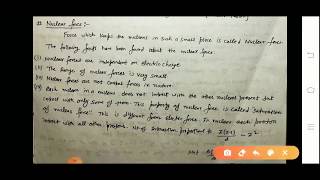 Nuclear force:-
Force which keeps the nucleons in such a small place is called Nuclear force.
The following facts have been found about the nuclear force:
(i) Nuclear forces are independent on electric charge.
(ii) The range of nuclear forces is very small.
(iii) Nuclear forces are not central forces in nature.
(iv) Each nucleon in a nucleus does not interact with the other nucleons present but
interact with only some of them. This property of nuclear force is called "saturation
of nuclear force". This is different from electric force. In nucleus each proton
interact with all other protons. No. of interaction proportional to Z(Z-1)/2 ~ Z²